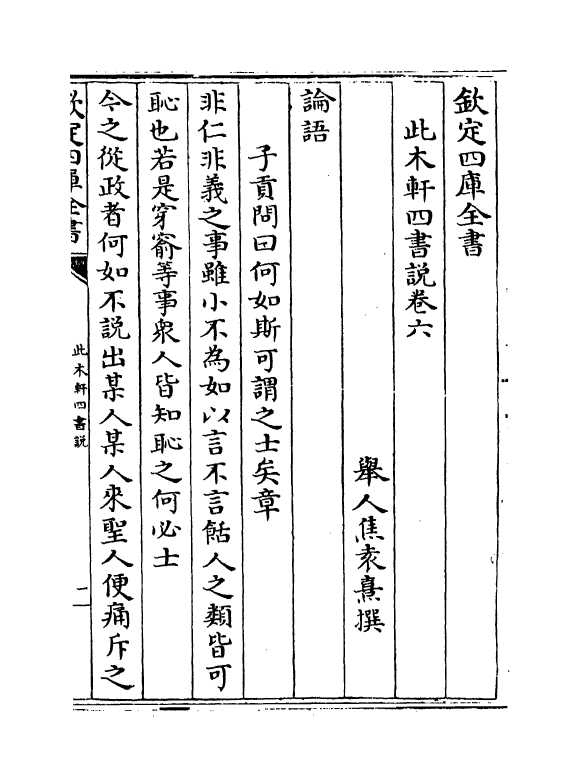 欽定四庫全書
此木軒四書説卷六
舉人焦袁熹撰
論語
子貢問曰何如斯可謂之士矣章
非仁非義之事雖小不為如以言不言餂人之類皆可
恥也若是穿窬等事衆人皆知恥之何必士
今之從政者何如不説出某人某人來聖人便痛斥之
欽定四庫全書
此木軒四書説
二